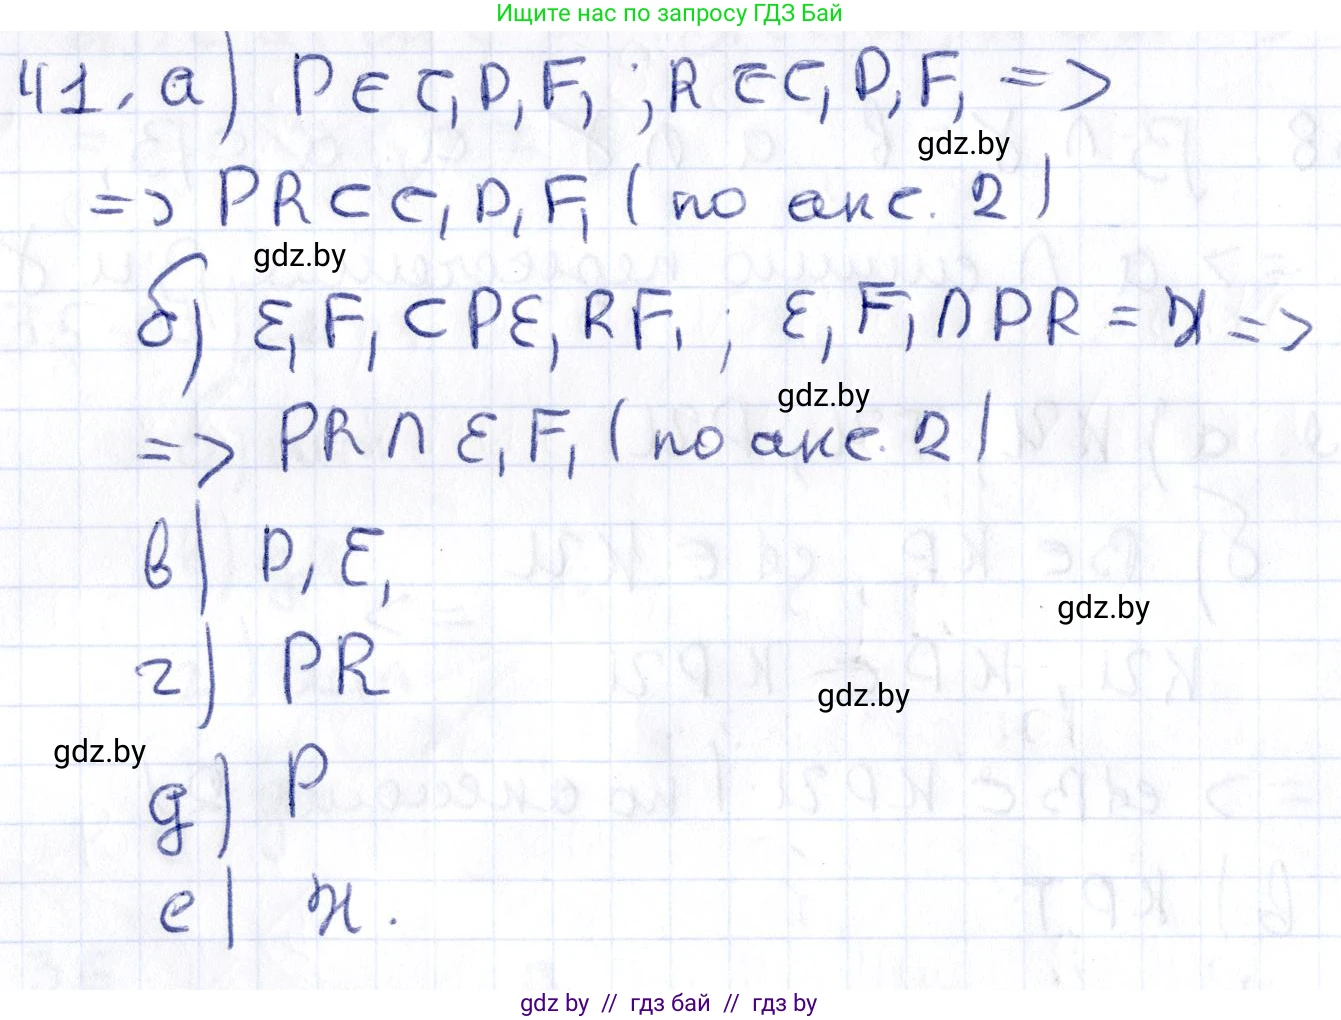 Ищите нас по запросу ГДЗ Бай
41. а) P ∈ C₁D₁F₁ ; R ∈ C₁D₁F₁ =>
gdz.by
=> PR ⊂ C₁D₁F₁ (по акс. 2)
gdz.by
б) E₁F₁ ⊂ PE₁RF₁ ; E₁F₁ ∩ PR = X =>
gdz.by
=> PR ∩ E₁F₁ (по акс. 2)
в) D₁E₁
gdz.by
г) PR
gdz.by
gdz.by
д) P
е) X.
gdz.by // гдз бай // гдз by